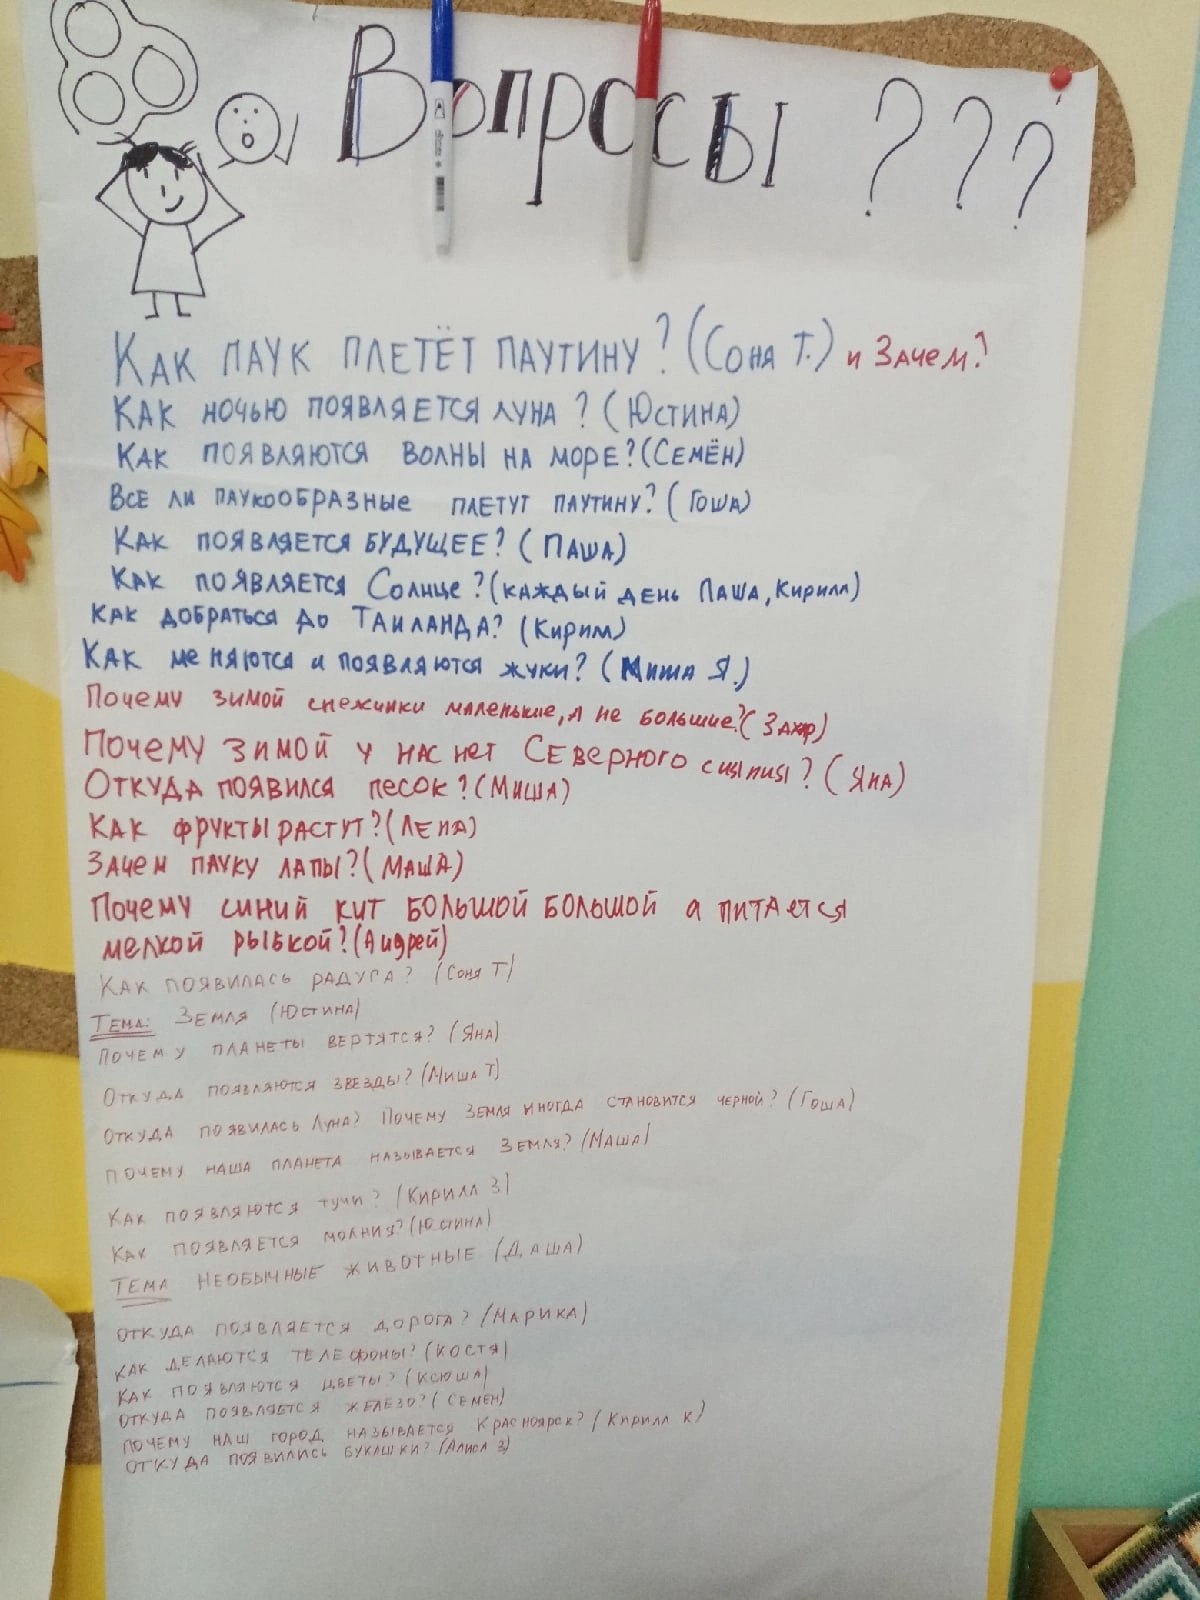 Вопросы ???
Как паук плетёт паутину? (Соня Т.) и Зачем?
Как ночью появляется луна? (Юстина)
Как появляются волны на море? (Семён)
Все ли паукообразные плетут паутину? (Гоша)
Как появляется будущее? (Паша)
Как появляется Солнце? (каждый день Паша, Кирилл)
Как добраться до Таиланда? (Кирилл)
Как меняются и появляются жуки? (Миша Я.)
Почему зимой снежинки маленькие, а не большие? (Захар)
Почему зимой у нас нет Северного сияния? (Яна)
Откуда появился песок? (Миша)
Как фрукты растут? (Лена)
Зачем пауку лапы? (Маша)
Почему синий кит большой большой а питается
мелкой рыбкой? (Андрей)
Как появилась радуга? (Соня Т)
Тема: Земля (Юстина)
Почему планеты вертятся? (Яна)
Откуда появляются звезды? (Миша Т)
Откуда появилась Луна? Почему Земля иногда становится черной? (Гоша)
Почему наша планета называется Земля? (Маша)
Как появляются тучи? (Кирилл З)
Как появляется молния? (Юстина)
Тема необычные животные (Даша)
Откуда появляется дорога? (Марика)
Как делаются телефоны? (Костя)
Как появляются цветы? (Ксюша)
Откуда появляется железо? (Семен)
Почему наш город называется Красноярск? (Кирилл К)
Откуда появились букашки? (Алиса З)